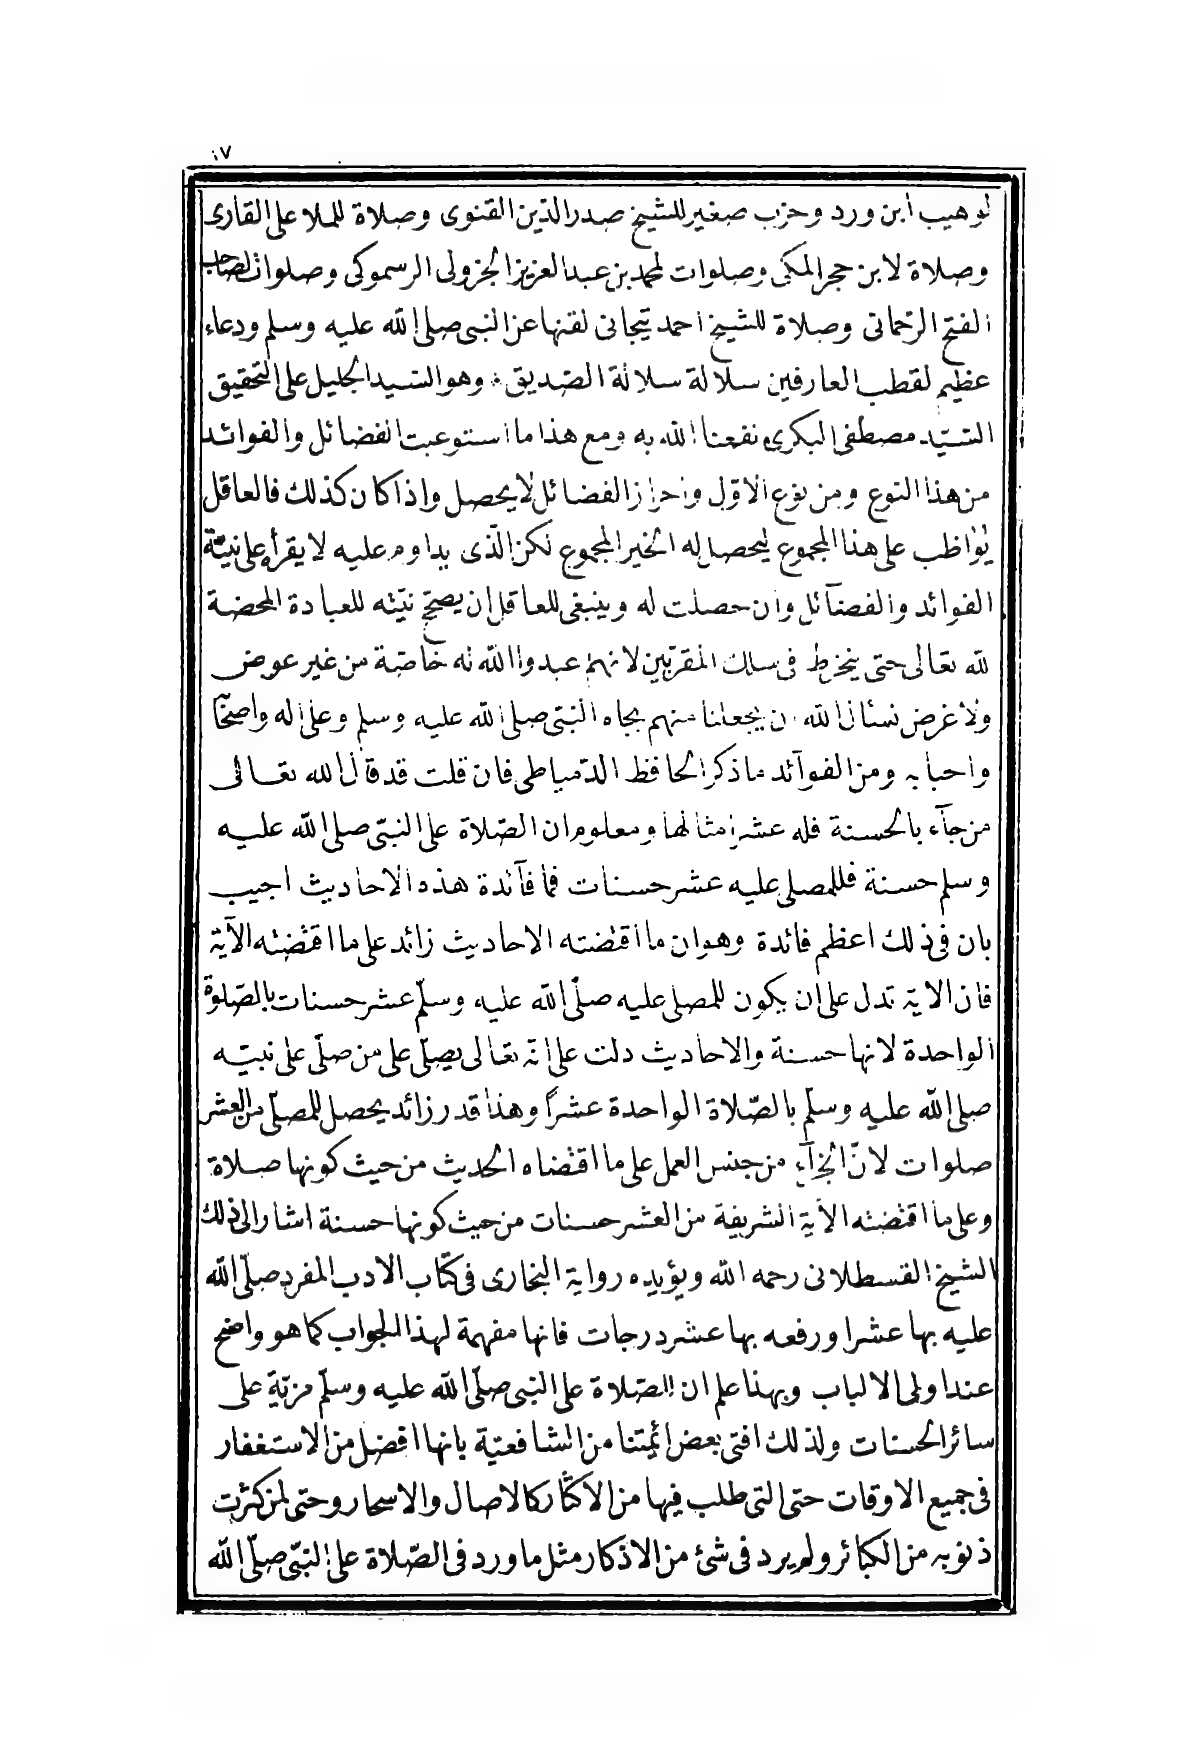 ١٧
لوهيب ابن ورد وحزب صغير للشيخ صدر الدين القنوى وصلاة للملا على القارى
وصلاة لابن حجر المكى وصلوات لمحمد بن عبد العزيز الجزولى الرسموكى وصلوات لصاحب
الفتح الرحمانى وصلاة للشيخ احمد تيجانى لقنها عن النبى صلى الله عليه وسلم ودعاء
عظيم لقطب العارفين سلالة سلالة الصّديق وهو السيد الجليل على التحقيق
السّيّد مصطفى البكرى نفعنا الله به ومع هذا ما استوعبت الفضائل والفوائد
من هذا النوع ومن نوع الاوّل واحراز الفضائل لا يحصل واذا كان كذلك فالعاقل
يواظب على هذا المجموع ليحصل له الخير المجموع لكن الّذى يداوم عليه لا يقرأه على نيّة
الفوائد والفضآئل وان حصلت له وينبغى للعاقل ان يصحّح نيّته للعبادة المحضة
لله تعالى حتى ينخرط فى سلك المقرّبين لانهم عبدوا الله له خاصّة من غير عوض
ولا غرض نسئال الله ان يجعلنا منهم بجاه النبّى صلى الله عليه وسلم وعلى اله واصحا
واحبابه ومن الفوآئد ما ذكر الحافظ الدّمياطى فان قلت قد قال الله تعالى
من جآء بالحسنة فله عشر امثالها ومعلوم ان الصّلاة على النبّى صلى الله عليه
وسلم حسنة فللمصلى عليه عشر حسنات فما فآئدة هذه الاحاديث اجيب
بان فى ذلك اعظم فائدة وهو ان ما اقتضته الاحاديث زائد على ما اقتضته الآية
فان الاية تدل على ان يكون للمصلى عليه صلّى الله عليه وسلّم عشر حسنات بالصّلوة
الواحدة لانها حسنة والاحاديث دلت على انّه تعالى يصلّى على من صلّى على نبيّه
صلى الله عليه وسلّم بالصّلاة الواحدة عشراً وهذا قدر زائد يحصل للمصلّى من العشر
صلوات لانّ الجزآء من جنس العمل على ما اقتضاه الحديث من حيث كونها صلاة
وعلى ما اقتضته الآية الشريفة من العشر حسنات من حيث كونها حسنة اشار الى ذلك
الشيخ القسطلانى رحمه الله ويؤيده رواية البخارى فى كتاب الادب المفرد صلّى الله
عليه بها عشرا ورفعه بها عشر درجات فانها مفهمة لهذا الجواب كما هو واضح
عند اولى الالباب وبهذا علم ان الصّلاة على النّبى صلّى الله عليه وسلّم مزيّة على
سائر الحسنات ولذلك افتى بعض ائمتنا من الشافعيّة بانها افضل من الاستغفار
فى جميع الاوقات حتى التى طلب فيها من الاكثار كالاصال والاسحار وحتى لمن كثرت
ذنوبه من الكبائر ولم يرد فى شئ من الاذكار مثل ما ورد فى الصّلاة على النبّى صلّى الله